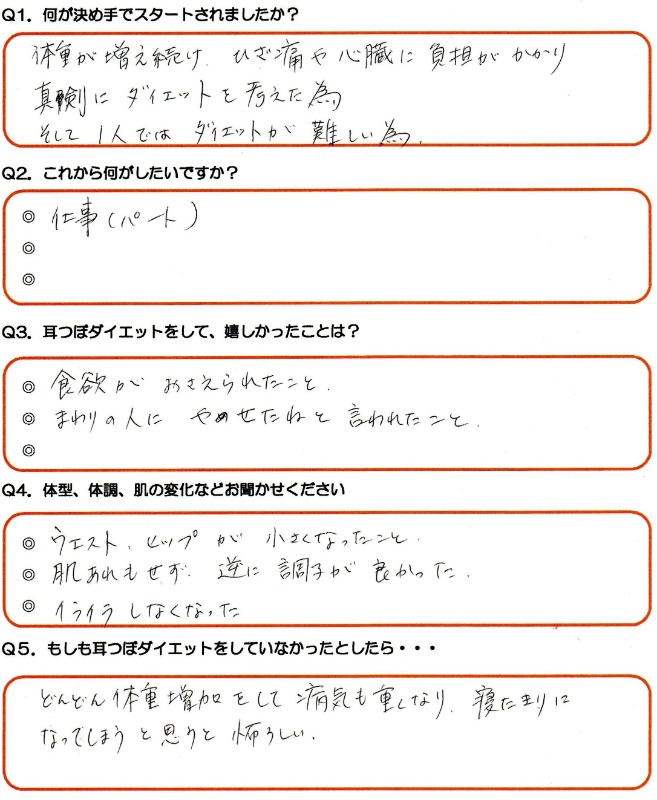 Q1. 何が決め手でスタートされましたか?
体重が増え続け、ひざ痛や心臓に負担がかかり
真剣にダイエットを考えた為
そして1人ではダイエットが難しい為。
Q2. これから何がしたいですか?
◎ 仕事(パート)
◎
◎
Q3. 耳つぼダイエットをして、嬉しかったことは?
◎ 食欲がおさえられたこと。
◎ まわりの人にやせたねと言われたこと。
◎
Q4. 体型、体調、肌の変化などお聞かせください
◎ ウエスト、ヒップが小さくなったこと。
◎ 肌あれもせず、逆に調子が良かった。
◎ イライラしなくなった
Q5. もしも耳つぼダイエットをしていなかったとしたら・・・
どんどん体重増加をして病気も重くなり、寝たきりに
なってしまうと思うと怖ろしい。